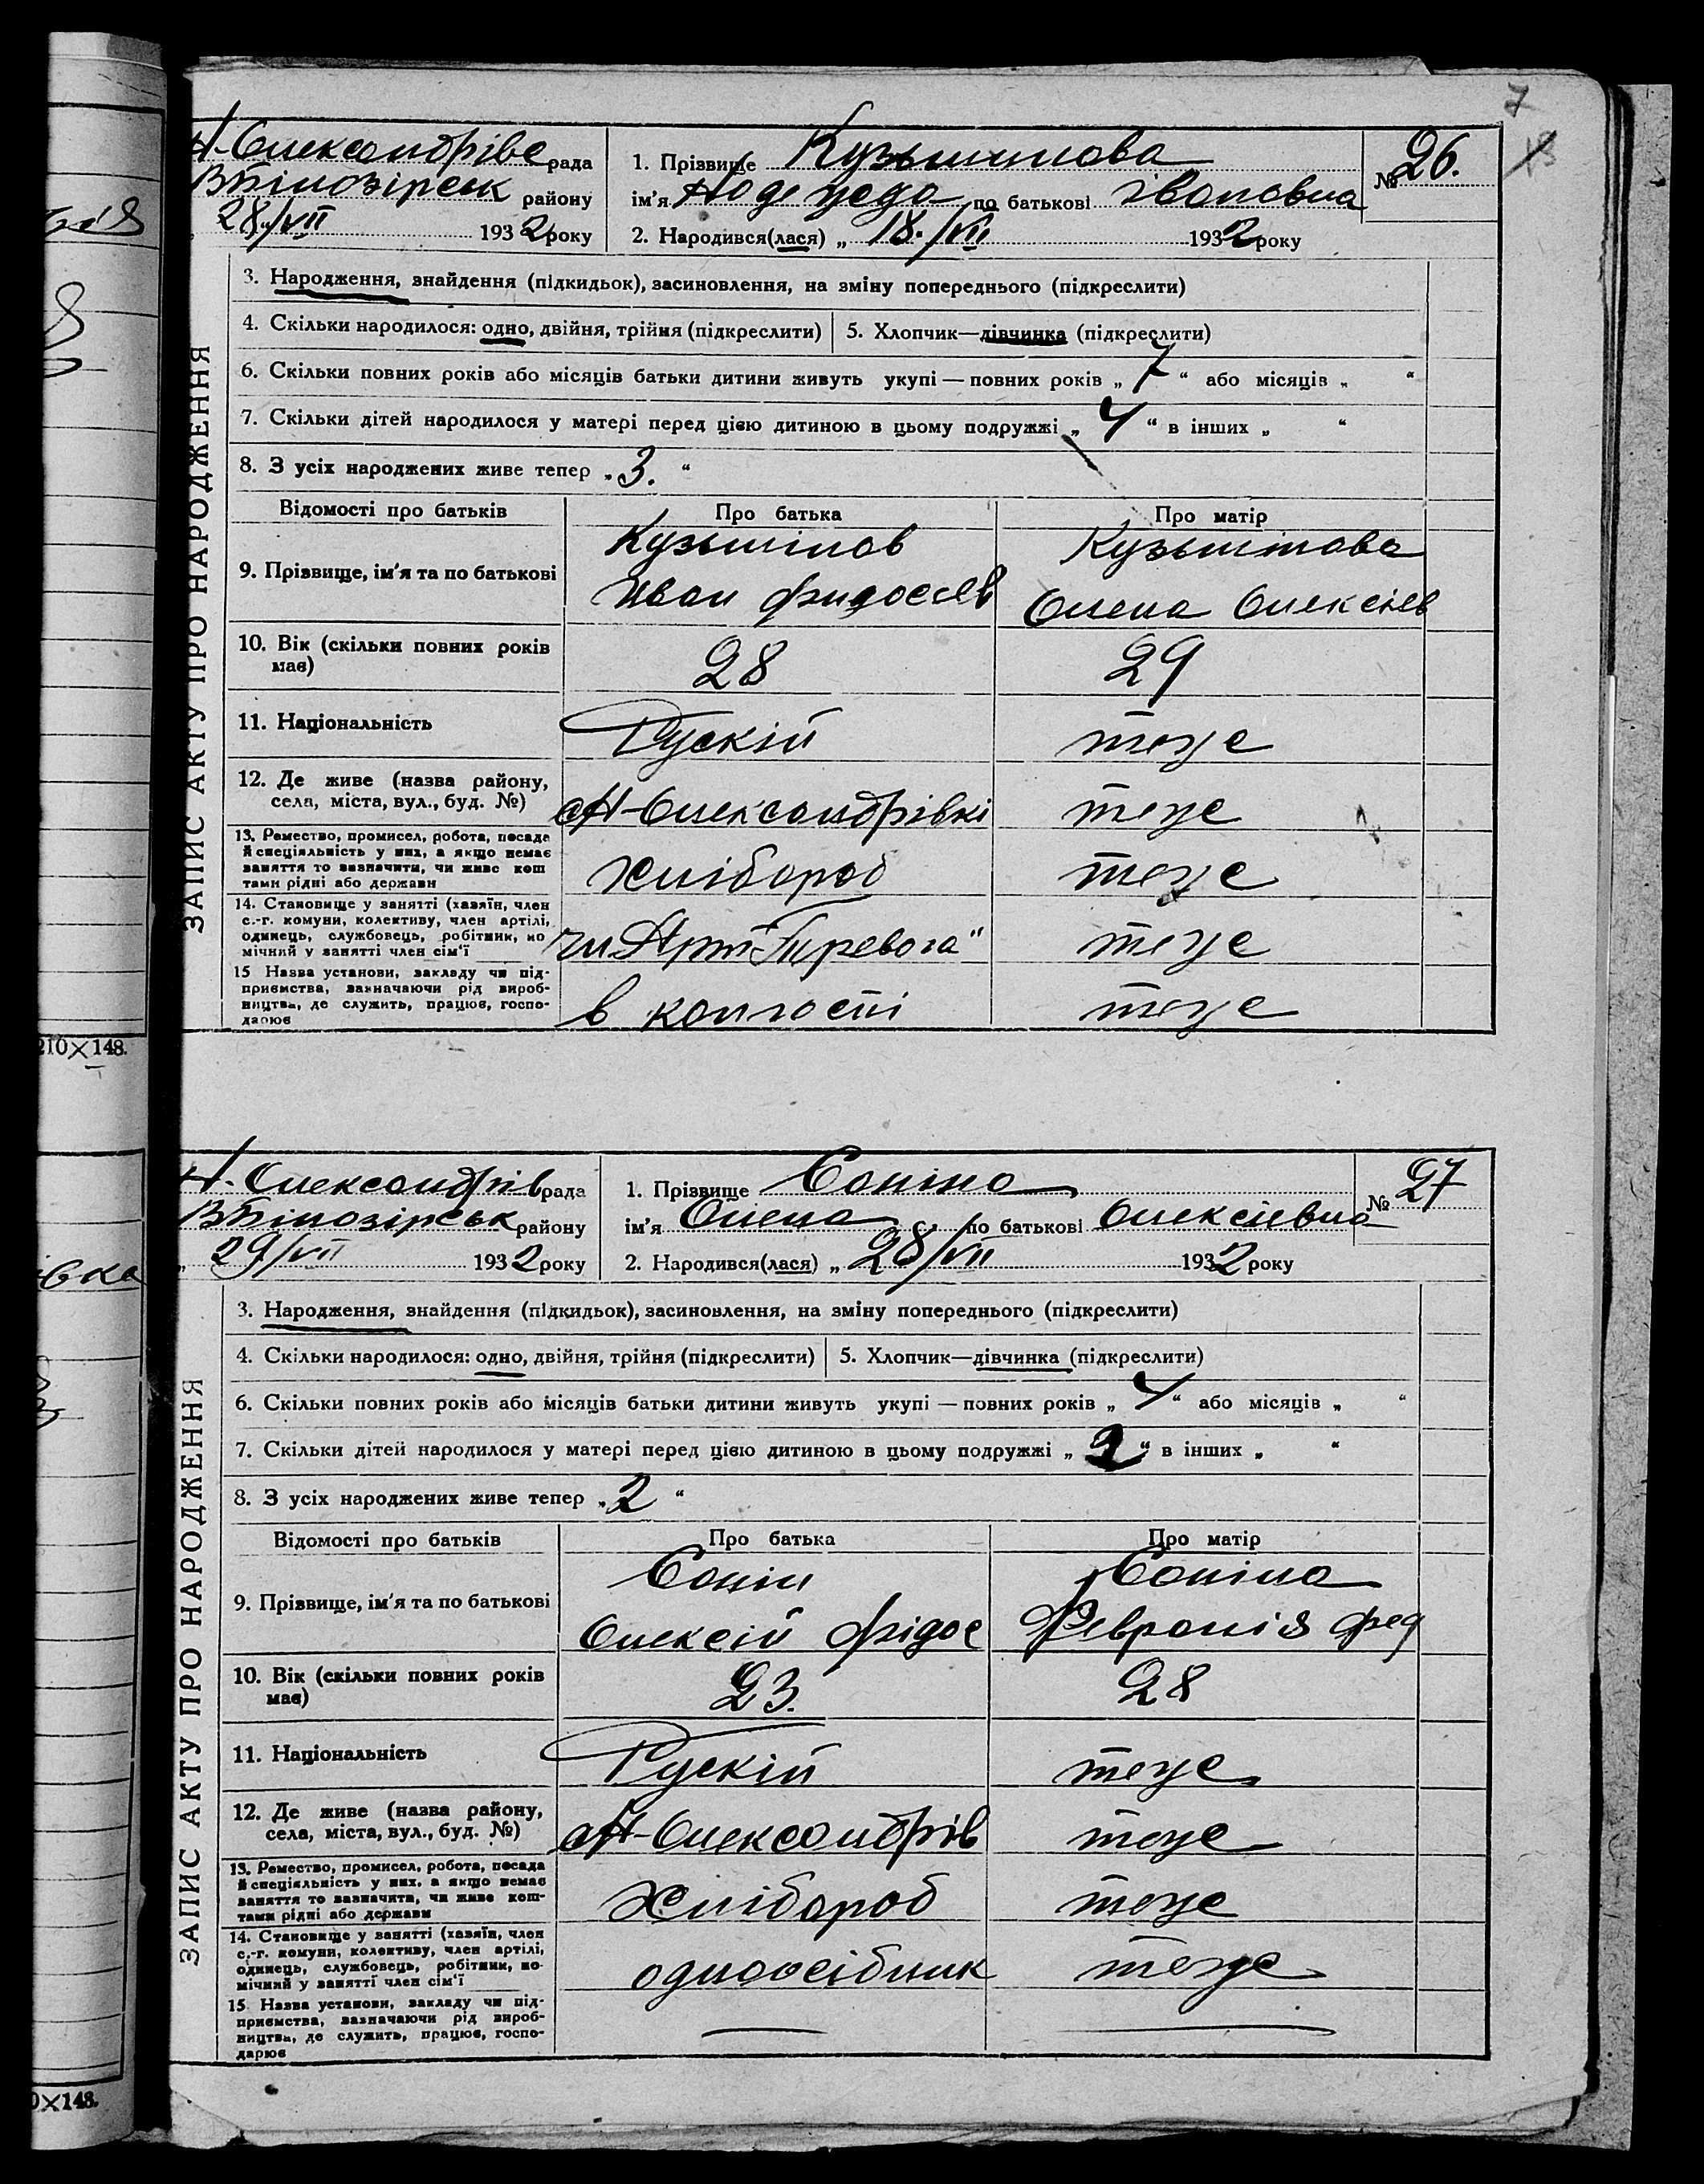 7
Н-Олександрівс рада
ВБілозірськ району
28/VII 1932 року
1. Прізвище Кузьмінова
ім'я Надежда по батькові Івановна
№ 26.
2. Народився(лася) „ 18/VII 1932 року
ЗАПИС АКТУ ПРО НАРОДЖЕННЯ
3. Народження, знайдення (підкидьок), засиновлення, на зміну попереднього (підкреслити)
4. Скільки народилося: одно, двійня, трійня (підкреслити) 5. Хлопчик—дівчинка (підкреслити)
6. Скільки повних років або місяців батьки дитини живуть укупі — повних років „ 7 “ або місяців „ “
7. Скільки дітей народилося у матері перед цією дитиною в цьому подружжі „ 4 “ в інших „ “
8. З усіх народжених живе тепер „ 3. “
Відомості про батьків Про батька Про матір
9. Прізвище, ім'я та по батькові
Кузьмінов
Иван Фидосєєв
Кузьмінова
Олена Олексіев
10. Вік (скільки повних років має) 28 29
11. Національність Рускій теже
12. Де живе (назва району, села, міста, вул., буд. №) сН-Олександрівкі теже
13. Ремество, промисел, робота, посада
й спеціяльність у них, а якщо немає
заняття то зазначити, чи живе кош
тами рідні або держави
Хлібороб теже
14. Становище у занятті (хазяїн, член
с.-г. комуни, колективу, член артілі,
одинець, службовець, робітник, по
мічний у занятті член сім'ї
чл. Арт теже
15 Назва установи, закладу чи під-
приємства, зазначаючи рід вироб-
ництва, де служить, працює, госпо-
дарює
в колгоспі теже
210×148.
Н-Олександрів рада
ВБілозірськ району
„ 29/VII 1932 року
1. Прізвище Соніна
ім'я Олена по батькові Олексіевна
№ 27
2. Народився(лася) „ 28/VII 1932 року
ЗАПИС АКТУ ПРО НАРОДЖЕННЯ
3. Народження, знайдення (підкидьок), засиновлення, на зміну попереднього (підкреслити)
4. Скільки народилося: одно, двійня, трійня (підкреслити) 5. Хлопчик—дівчинка (підкреслити)
6. Скільки повних років або місяців батьки дитини живуть укупі — повних років „ 4 “ або місяців „ “
7. Скільки дітей народилося у матері перед цією дитиною в цьому подружжі „ 2 “ в інших „ “
8. З усіх народжених живе тепер „ 2 “
Відомості про батьків Про батька Про матір
9. Прізвище, ім'я та по батькові
Сонін
Олексій Фідос
Соніна
Февронія Фед
10. Вік (скільки повних років має) 23. 28
11. Національність Рускій теже
12. Де живе (назва району, села, міста, вул., буд. №) сН-Олександрів теже
13. Ремество, промисел, робота, посада
й спеціяльність у них, а якщо немає
заняття то зазначити, чи живе кош-
тами рідні або держави
Хлібороб теже
14. Становище у занятті (хазяїн, член
с.-г. комуни, колективу, член артілі,
одинець, службовець, робітник, по-
мічний у занятті член сім'ї
одноосібник теже
15 Назва установи, закладу чи під-
приємства, зазначаючи рід вироб-
ництва, де служить, працює, госпо-
дарює
0×148.